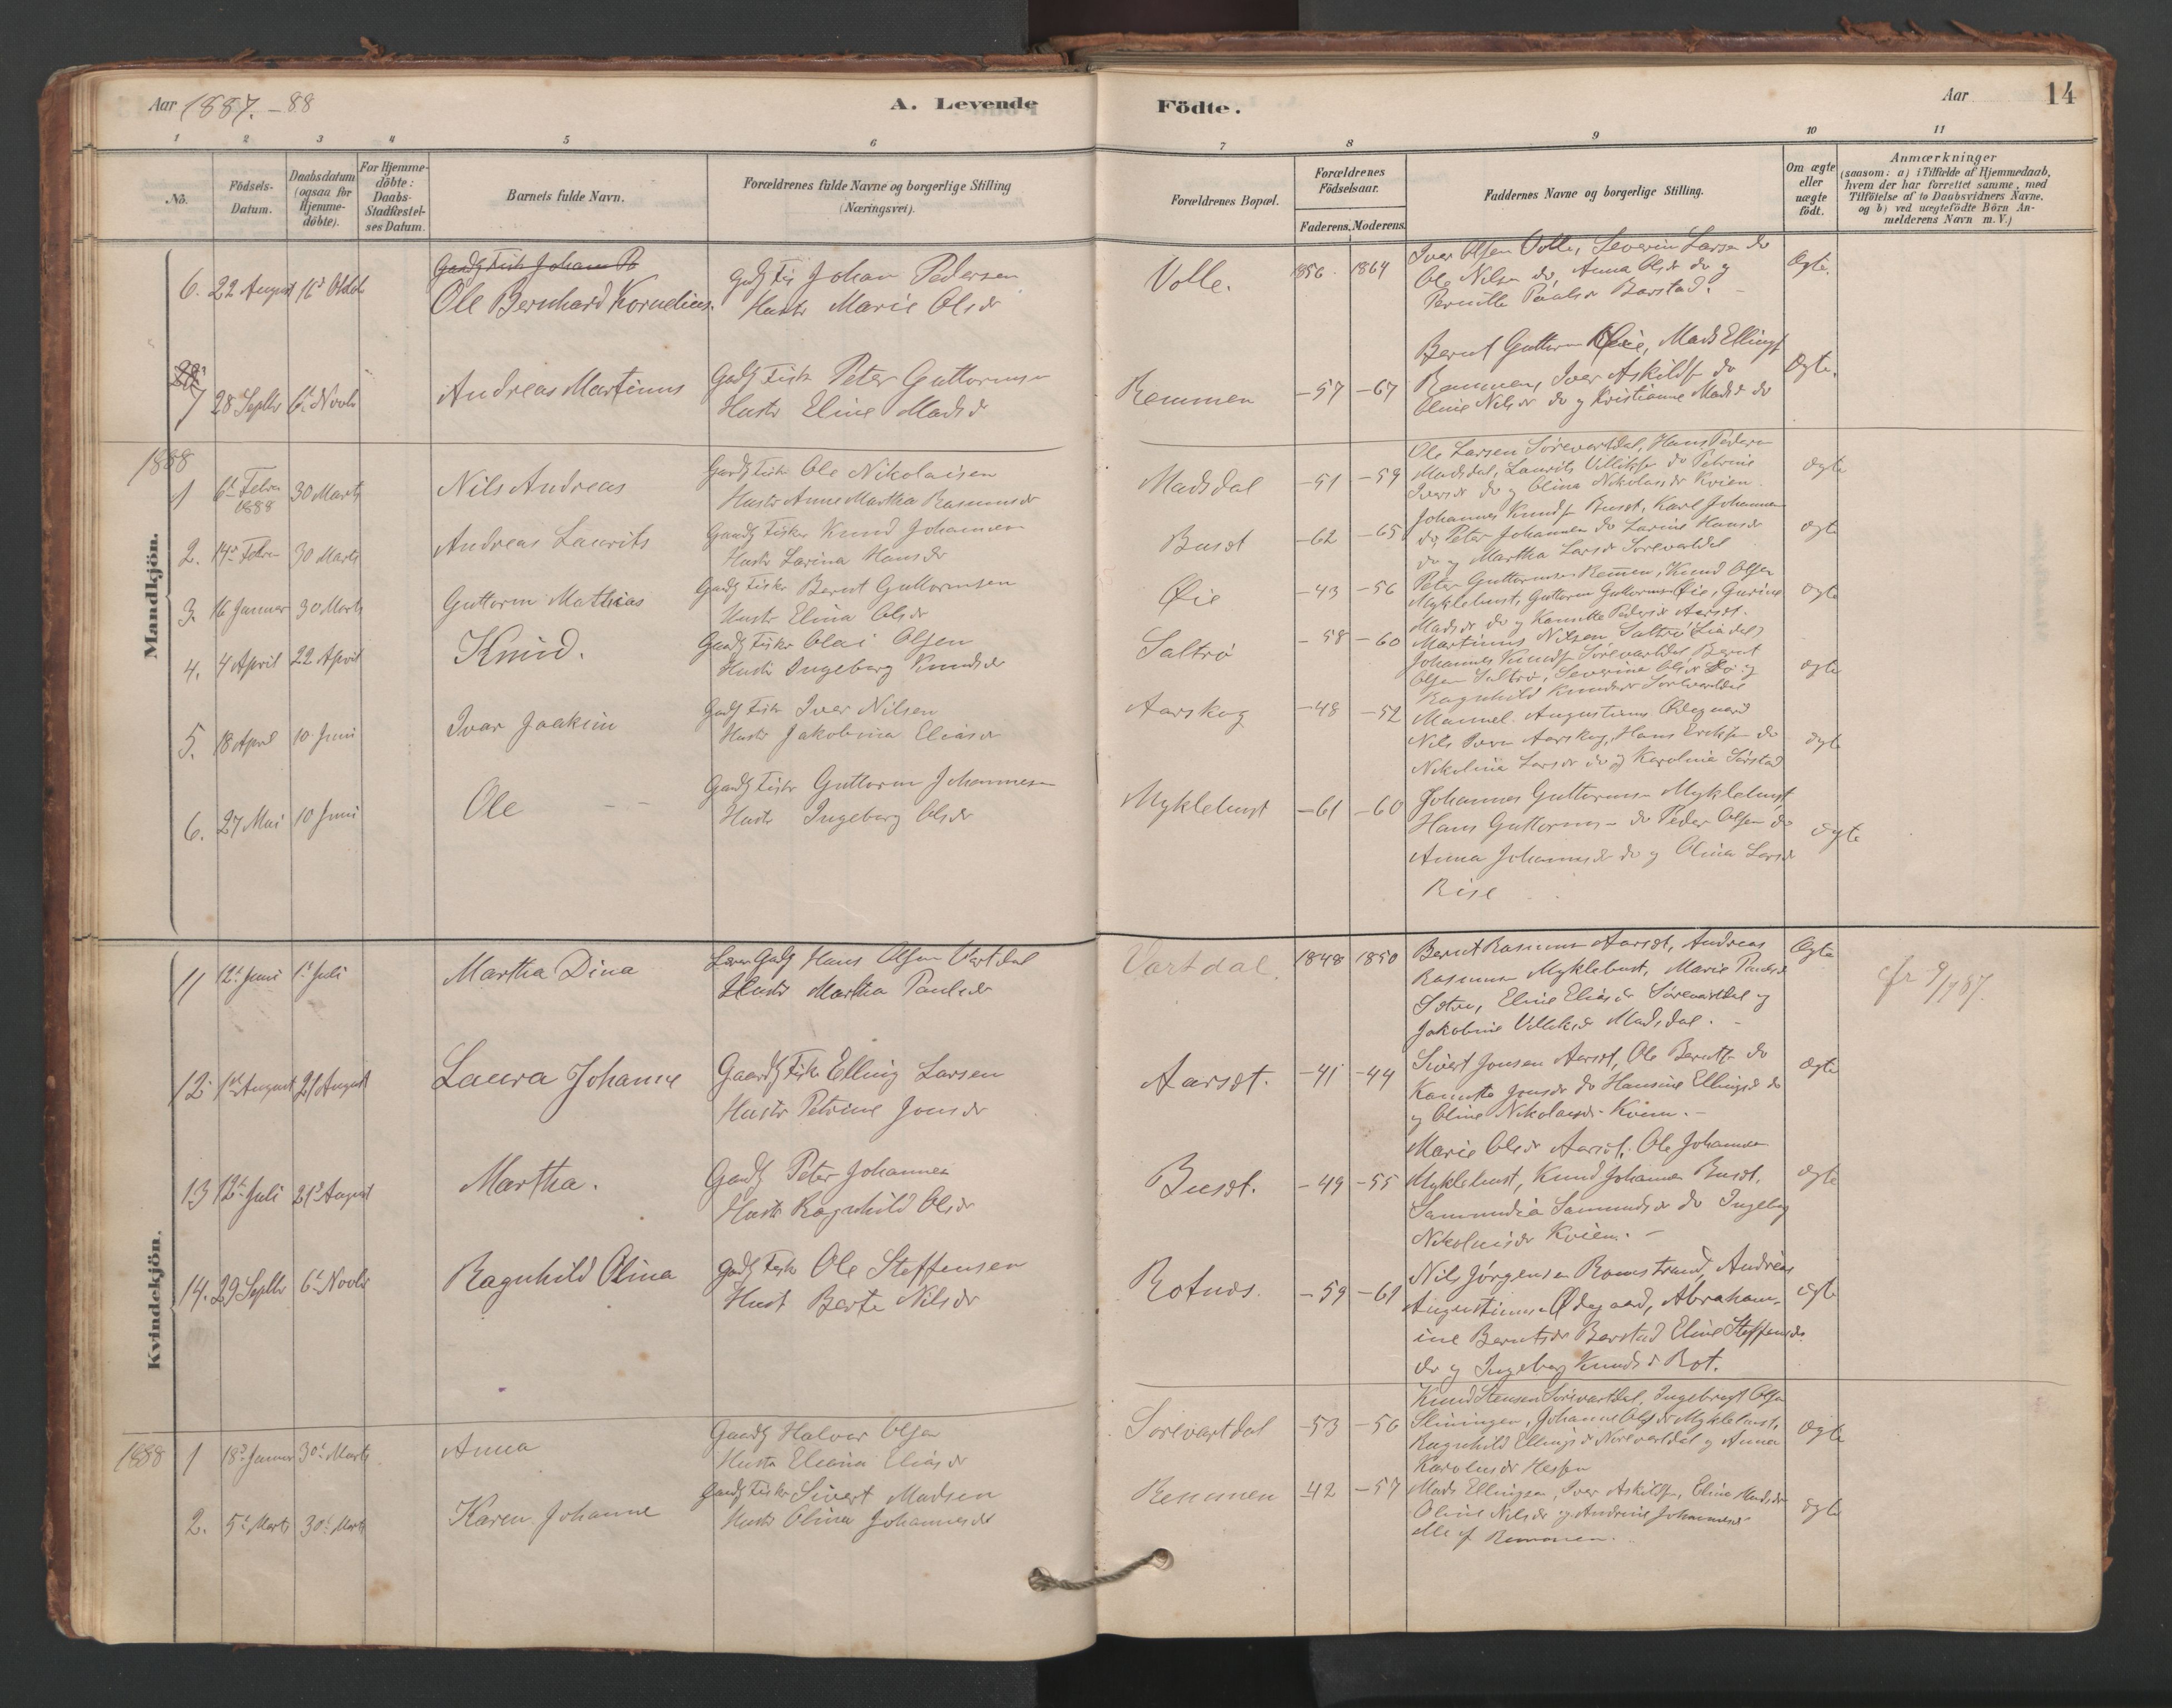 Aar 1887.-88
A. Levende
Födte.
Aar
14
1 2 3 4 5 6 7 8 9 10 11
No.
Födsels-Datum.
Daabsdatum (ogsaa for Hjemme-döbte).
For Hjemme-döbte: Daabs-Stadfæstel-ses Datum.
Barnets fulde Navn.
Forældrenes fulde Navne og borgerlige Stilling (Næringsvei).
Forældrenes Bopæl.
Forældrenes Födselsaar.
Faderens. Moderens.
Faddernes Navne og borgerlige Stilling.
Om ægte eller uægte födt.
Anmærkninger
(saasom: a) i Tilfælde af Hjemmedaab,
hvem der har forrettet samme, med
Tilföielse af to Daabsvidners Navne,
og b) ved uægtefödte Börn An-
melderens Navn m. V.)
Mandkjön.
6. 22 August 16d Oktbr
Ole Bernhard Kornelius.
Johan Pedersen
Hustr Marie Olsdr
Volle. 1856. 1864
Iver Olsen Volle, Severin Larsen do
Ole Nilsen do, Anna Olsdr do og
Pernille Paulsdr Barstad.
Ægte.
7 28 Septbr 6t Novbr
Andreas Martinus
Gadf Fisk Peter Guttormsen
Hustr Eline Madsdr
Remmen -57 -67
Bernt Guttormsen Øie, Mads Ellingsf
Remmen, Iver Askildsf do
Oline Nilsdr do og Kristianne Madsdr do
Ægte.
1888
1 6t Febr 1888 30 Marts
Nils Andreas
Gaardf Fisker Ole Nikolaisen
Hustr Anne Martha Rasmusdr
Madsdal -51 -59
Ole Larsen Sörevartdal, Hans Pedersen
Madsdal, Laurits Villiksen do Petrine
Iversdr do og Olina Nikolaisdr Kvien.
ægte
2. 14de Febr 30 Marts
Andreas Laurits
Gaardf Fisker Knud Johannesen
Hustr Larina Hansdr
Busæt -62 -65
Johannes Knudsf Busæt, Karl Johannesen
do, Peter Johannesen do Larine Hansdr
do og Martha Larsdr Sörevartdal
ægte
3. 16 Januar 30 Marts
Guttorm Mathias
Gaardf Fisker Bernt Guttormsen
Hustr Elina Olsdr
Øie -43 -56
Peter Guttormsen Remmen, Knud Olsen
Myklebust, Guttorm Guttormsen Øie, Gurine
Madsdr do og Pedersdr Aarsæt.
ægte
4. 4 April 22 April
Knud.
Gaardf Fisker Olai Olsen
Hustr Ingeborg Knudsdr
Saltrö -58 -60
Martinus Nilsen Saltrö
Johannes Knudsf Sörevartdal, Bernt
Olsen Saltrö, Severine Olsdr do og
Ragnhild Knudsdr Sörevartdal
ægte
5. 18 April 10 Juni
Ivar Joakim
Gaardf Fisk Iver Nilsen
Hustr Jakobina Eliasdr
Aarskog -48 -52
Manuel Augustinus. Ødegaard
Nils Aarskog, Hans Eriksen do
Nikoline Larsdr do og Karoline Sörstad
ægte
6. 27 Mai 10 Juni
Ole
Gaardf Fisker Guttorm Johannesen
Hustr Ingeborg Olsdr
Myklebust -61 -60
Johannes Guttormsen Myklebust,
Hans Guttormsen do Peder Olsen do
Anna Johannesdr do og Olina Larsdr
Rise
ægte
Kvindekjön.
11 12t Juni 1t Juli
Martha Dina
Lærer Gadf Hans Olsen Vartdal
Hustr Martha Paulsdr
Vartdal. 1848 1850
Bernt Rasmussen Aarsæt, Andreas
Rasmussen Myklebust, Marie Paulsdr
Sætre, Eline Eliasdr Sörevartdal og
Jakobine Villiksdr Madsdal.
Ægte
cfr 9/7 87.
12. 1st August 21 August
Laura Johanne
Gaardf Fisk Elling Larsen
Hustr Petrine Jonsdr
Aarsæt. -41 -44
Sivert Jonsen Aarsæt, Ole Berntsen do
Jonsdr do Hansine Ellingsdr do
og Oline Nikolaisdr Kvien.
ægte
13 12te Juli 21d August
Martha.
Gaardf Peter Johannesen
Hustr Ragnhild Olsdr
Busæt. -49 -55
Marie Olsdr Aarsæt, Ole Johannesen
Myklebust, Knud Johannesen Busæt,
Samundia Samundsdr do Ingeborg
Nikolaisdr Kvien.
ægte
14. 29 Septbr 6t Novbr
Ragnhild Olina
Gaardf Fisk Ole Steffensen
Hust Berte Nilsdr
Rotnes. -59 -61
Nils Jörgensen Romstrand, Andreas
Augustinussen Ødegaard, Abraham-
ine Berntsdr Barstad Eline Steffensdr
do og Ingeborg Knudsdr Rot.
ægte
1888 1 18d Januar 30t Marts
Anna
Gaardf Halvor Olsen
Hustr Eliana Eliasdr
Sörevartdal -53 -56
Knud Stensen Sörevartdal, Ingebrigt Olsen
Sliningen, Johanne Olsdr Myklebust,
Ragnhild Ellingsdr Nörevartdal og Anna
Karolusdr Hessen
ægte
2. 5t Marts 30t Marts
Karen Johanne
Gaardf Fisker Sivert Madsen
Hustr Olina Johannesdr
Remmen -42 -57
Mads Ellingsen, Iver Askildsen, Elina Madsdr
Oline Nilsdr og Andrine Johannesdr
alle af Remmen.
ægte